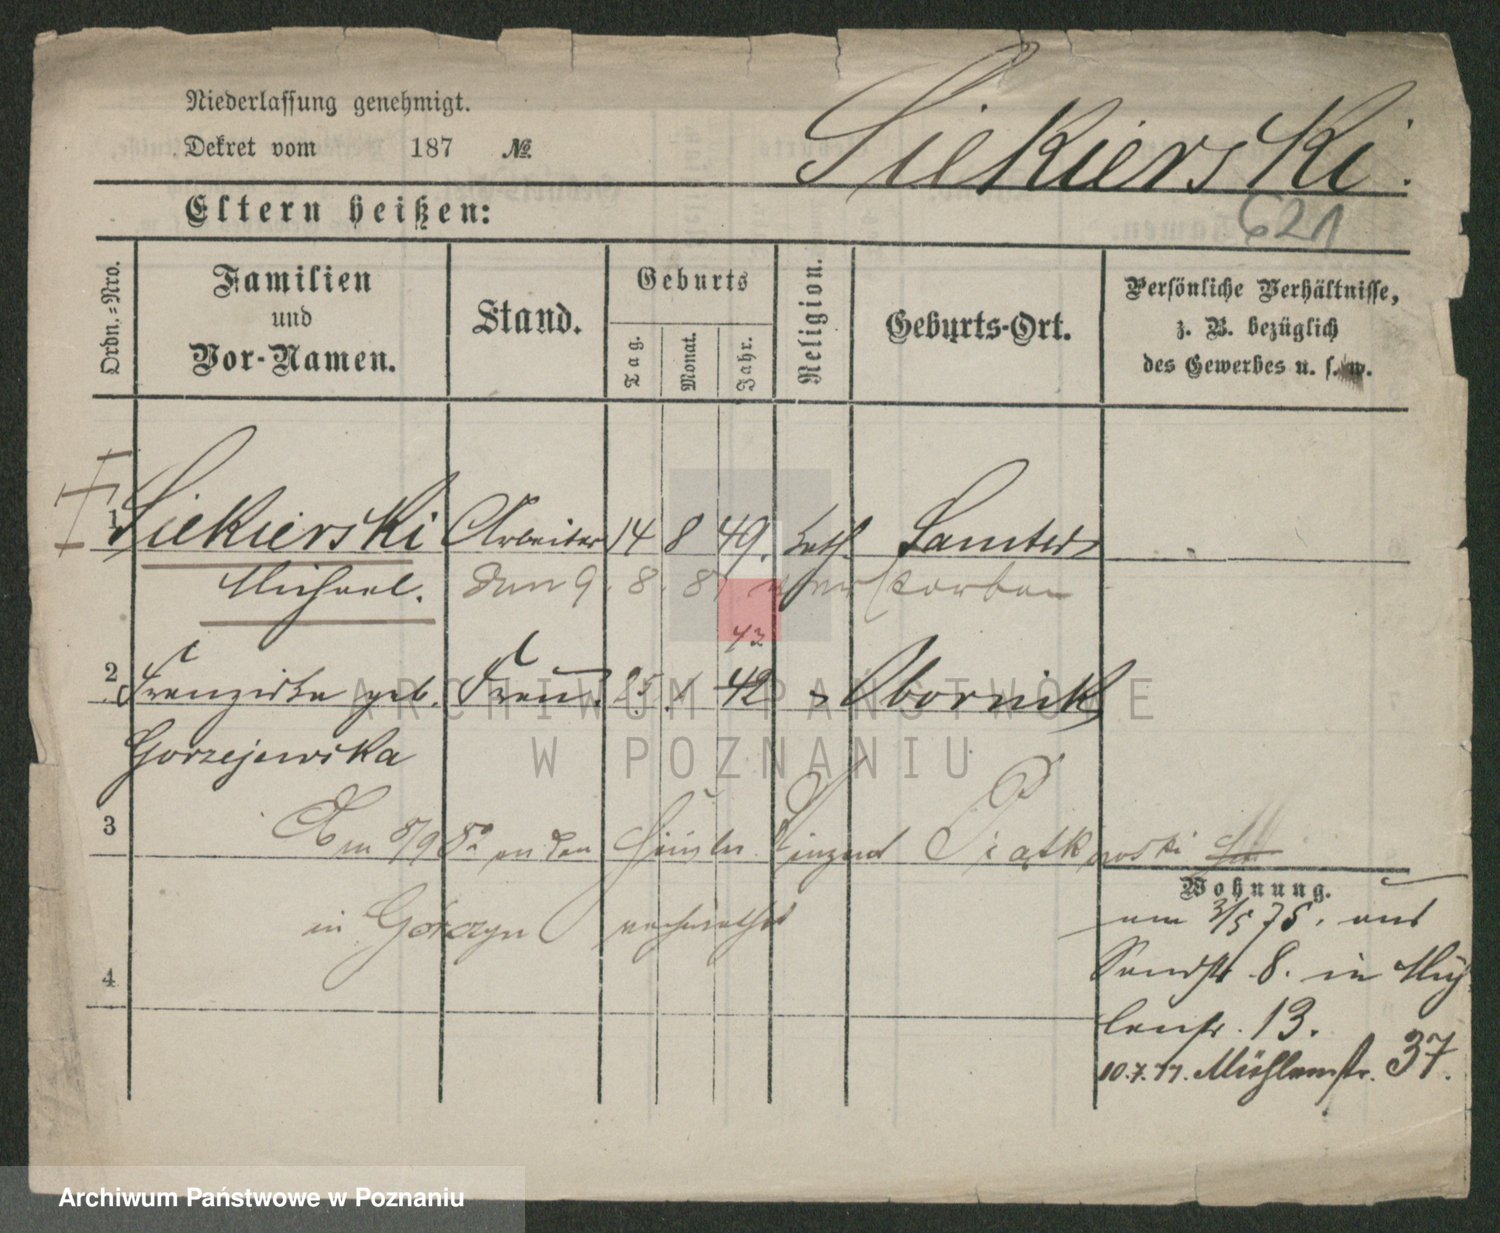 Niederlassung genehmigt.
Siekierski.
Dekret vom 187 №
Eltern heißen:
621
Ordn.=Nro.
Familien
und
Vor-Namen.
Stand.
Geburts
Tag.
Monat.
Jahr.
Religion.
Geburts-Ort.
Persönliche Verhältnisse,
z. B. bezüglich
des Gewerbes u. s. w.
1 Siekierski Arbeiter 14 8 49. kath. Samter
Michael. den 9. 8. 81 verstorben
43
2 Franziska geb. Frau 25. 1 42 Obornik
Gorzejewska
3 Am 8/9 82 an den Häusler Vinzent Piątkowski
in Górczyn verheirathet
4
Wohnung.
am 3/5 75. aus
Sandstr 8. in Müh
lenstr. 13.
10.7.77. Mühlenstr. 37.
ARCHIWUM PAŃSTWOWE
W POZNANIU
Archiwum Państwowe w Poznaniu